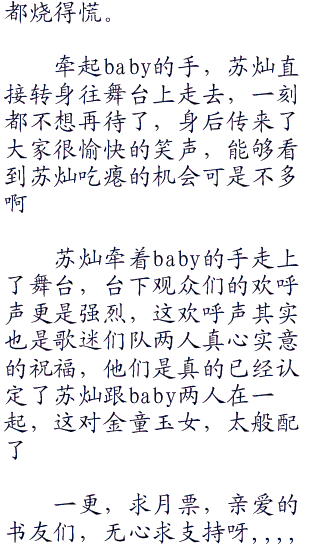 都烧得慌。
牵起baby的手，苏灿直
接转身往舞台上走去，一刻
都不想再待了，身后传来了
大家很愉快的笑声，能够看
到苏灿吃瘪的机会可是不多
啊
苏灿牵着baby的手走上
了舞台，台下观众们的欢呼
声更是强烈，这欢呼声其实
也是歌迷们队两人真心实意
的祝福，他们是真的已经认
定了苏灿跟baby两人在一
起，这对金童玉女，太般配
了
一更，求月票，亲爱的
书友们，无心求支持呀,,,,